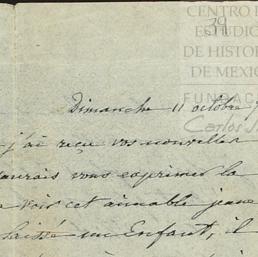 CENTRO
ESTUDIO
DE HISTOR
DE MEXIC
FUNDAC
Carlos
39
Dimanche 11 octobr
j'ai reçu vos nouvelles
aurais vous exprimer la
voir cet aimable jeune
laissé un Enfant, il